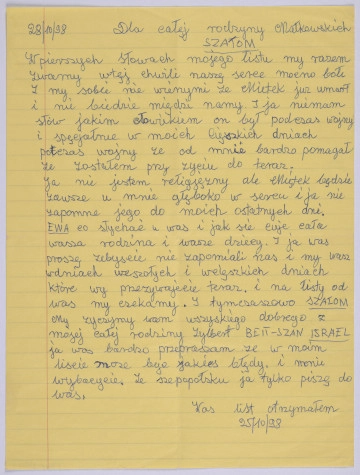 28/10/98 Dla całej rodzyny Motkowskich
SZAŁOM
W pierszych słowach mojego listu my razem
w tej chwili naszę serce mocno bołi
I my sobie nie wiinymy ze Mietek juz umarł
i nie biedzie miedzi namy I ja niemam
słów jakim człowiekiem on był podczas wojny
i specjalnie w moich dniach
potczas wojny ze od mnie bardzo pomagał
ze zostałem przy zyciu do teraz.
Ja nie jestem religijzny ale Mietek będzie
zawsze u mnie głęboko w sercu i ja nie
zapomne jego do moich ostatnych dni.
EWA co słychać u was i jak sie cuje cała
wasza rodzina i wasze dziecy. I ja was
proszę zebyście nie zapomniali nas i my was
w dniach weszołych i welyskich dniach
które wy przezywajecie teraz. i na listy od
was my czekamy. I tymczasowo SZAŁOM
My zyczymy wam wszyskiego dobrego z
mojej całej rodziny Zylbert BEIT-SZAN ISRAEL
ja was bardzo przepraszam ze w moim
liscie moze byc jakies błędy. i moniu
wybaczcie. Ze szepopolsku ja tylko piszę do
was.
Was list otrzymałem
25/10/98